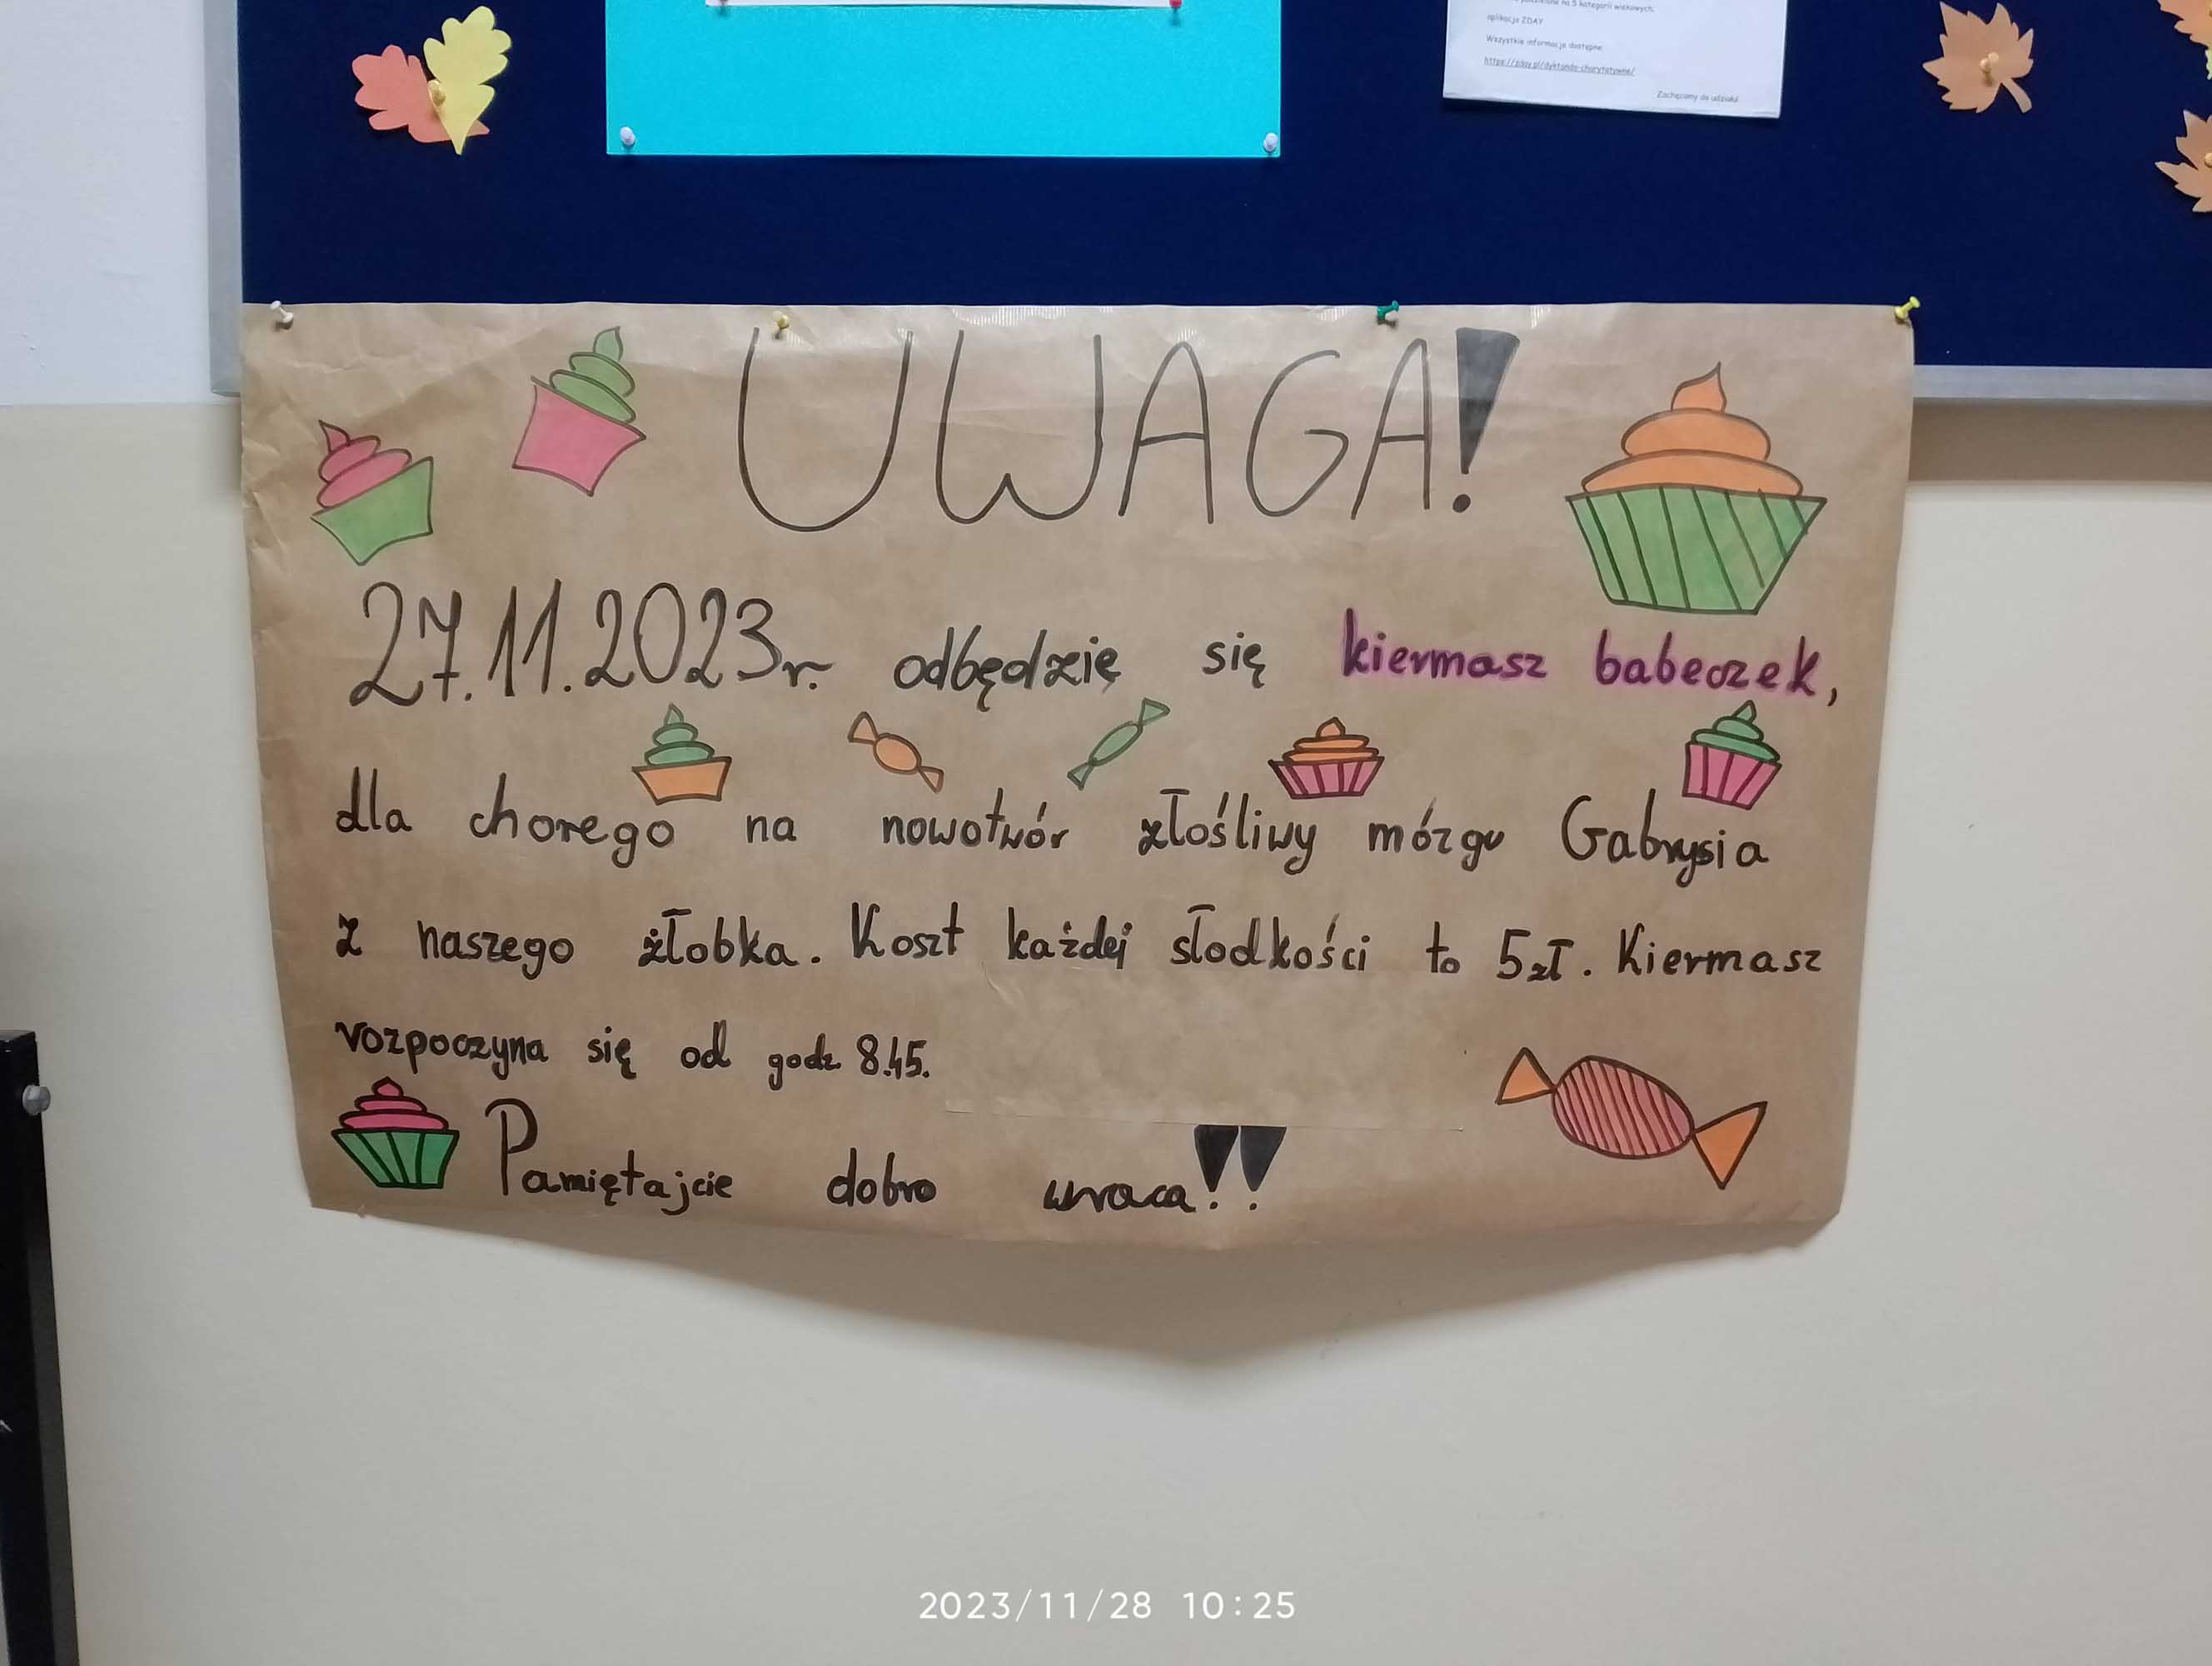 na 5 kategorii wiekowych.
aplikacja ZDAY
Wszystkie informacje dostępne:
https://zday.pl/dyktando-charytatywne/
Zachęcamy do udziału!
UWAGA!
27.11.2023r. odbędzię się kiermasz babeczek,
dla chorego na nowotwór złośliwy mózgu Gabrysia
z naszego żłobka. Koszt każdej słodkości to 5zł. Kiermasz
rozpoczyna się od godz. 8.45.
Pamiętajcie dobro wraca!!
2023/11/28 10:25